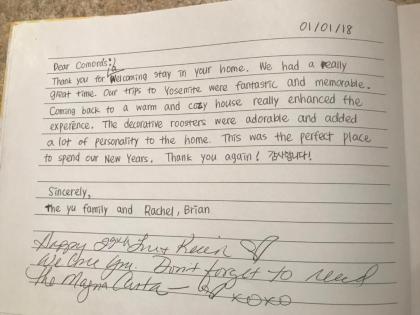 01/01/18
Dear Comords:)
Thank you for a welcoming stay in your home. We had a really
great time. Our trips to Yosemite were fantastic and memorable.
Coming back to a warm and cozy house really enhanced the
experience. The decorative roosters were adorable and added
a lot of personality to the home. This was the perfect place
to spend our New Years. Thank you again! 감사합니다!
Sincerely,
the yu family and Rachel, Brian
Happy
We love you. Don't forget to read
the Magna Carta — xoxo